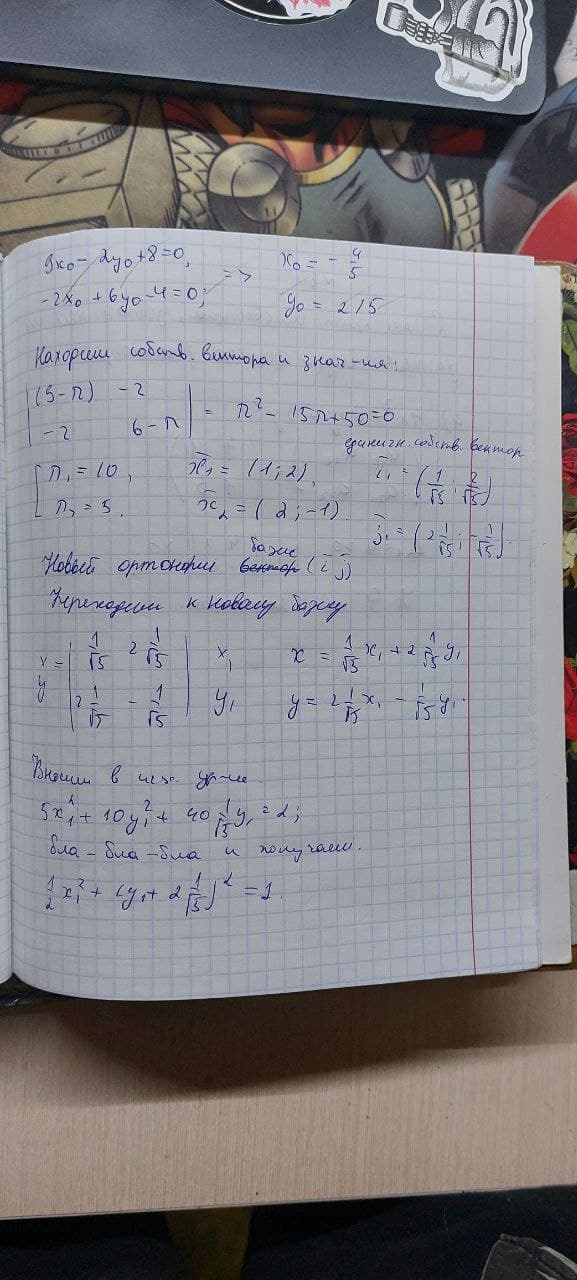 9x₀ - 2y₀ + 8 = 0, => x₀ = - 4/5
-2x₀ + 6y₀ - 4 = 0; y₀ = 2/5
Находим собств. вектора и знач-ия:
|(9-λ) -2|
|-2 6-λ| = λ² - 15λ + 50 = 0
единичн. собств. вектор
[λ₁ = 10, x̄₁ = (1; 2), ī₁ = (1/√5; 2/√5)
[λ₂ = 5. x̄₂ = (2; -1). j̄₁ = (2 1/√5; - 1/√5).
базис
Новый ортонорм вектор (ī j̄)
Переходим к новому базису
x = | 1/√5 2 1/√5 | x₁ x = 1/√5 x₁ + 2 1/√5 y₁
y | 2 1/√5 - 1/√5 | y₁ y = 2 1/√5 x₁ - 1/√5 y₁.
в исх. ур-ие.
5x₁² + 10y₁² + 40 1/√5 y₁ = 2;
бла-бла-бла и получаем.
1/2 x₁² + (y₁ + 2 1/√5)² = 1.